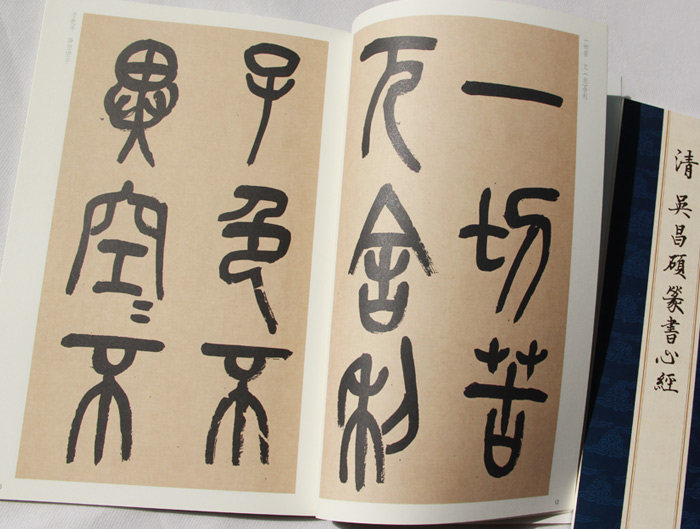 一切苦
厄舍利
子色不
異空〻不
清 吳昌碩篆書心經